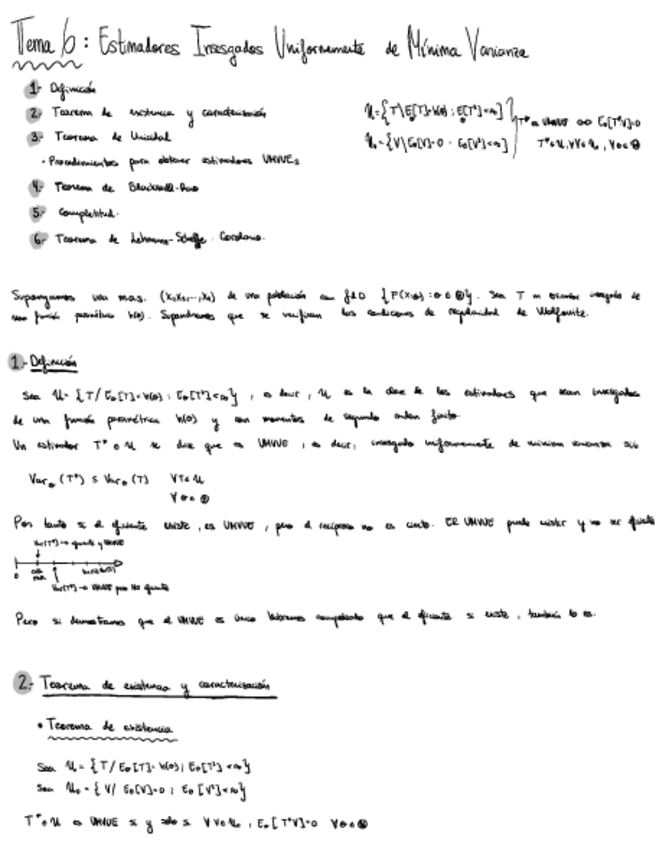 Tema 6: Estimadores Insesgados Uniformemente de Mínima Varianza
1- Definición
2- Teorema de existencia y caracterización
3- Teorema de Unicidad
• Procedimientos para obtener estimadores UMVUEs
4- Teorema de Blackwell-Rao
5- Completitud.
6- Teorema de Lehmann-Scheffe. Corolario.
U={T\E[T]=h(θ); E[T²]<∞}
U₀={V\E₀[V]=0 · E₀[V²]<∞}
T* es UMVUE ⇔ E₀[T*V]=0
T*∈U, ∀V∈U₀, ∀θ∈Θ
Supongamos una m.a.s. (X₁,X₂,...,Xₙ) de una población con f.d.D {F(x;θ): θ∈Θ}. Sea T un estimador insesgado de
una función paramétrica h(θ). Supondremos que se verifican las condiciones de regularidad de Wolfowitz.
1.- Definición
Sea U={T/ E₀[T]=h(θ); E₀[T²]<∞}, es decir, U es la clase de los estimadores que sean insesgados
de una función paramétrica h(θ) y con momentos de segundo orden finito.
Un estimador T*∈U se dice que es UMVUE, es decir, insesgado uniformemente de mínima varianza si
Var₀(T*) ≤ Var₀(T) ∀T∈U
∀θ∈Θ
Por tanto si el eficiente existe, es UMVUE, pero el recíproco no es cierto. El UMVUE puede existir y no ser eficiente
Var(T*)→ eficiente y UMVUE
0
Var(T*)→ UMVUE pero NO eficiente
Pero si demostramos que el UMVUE es único habremos comprobado que el eficiente si existe, también lo es.
2.- Teorema de existencia y caracterización
• Teorema de existencia
Sea U={T/ E₀[T]=h(θ); E₀[T²]<∞}
Sea U₀={V/ E₀[V]=0; E₀[V²]<∞}
T*∈U es UMVUE si y sólo si ∀V∈U₀, E₀[T*V]=0 ∀θ∈Θ